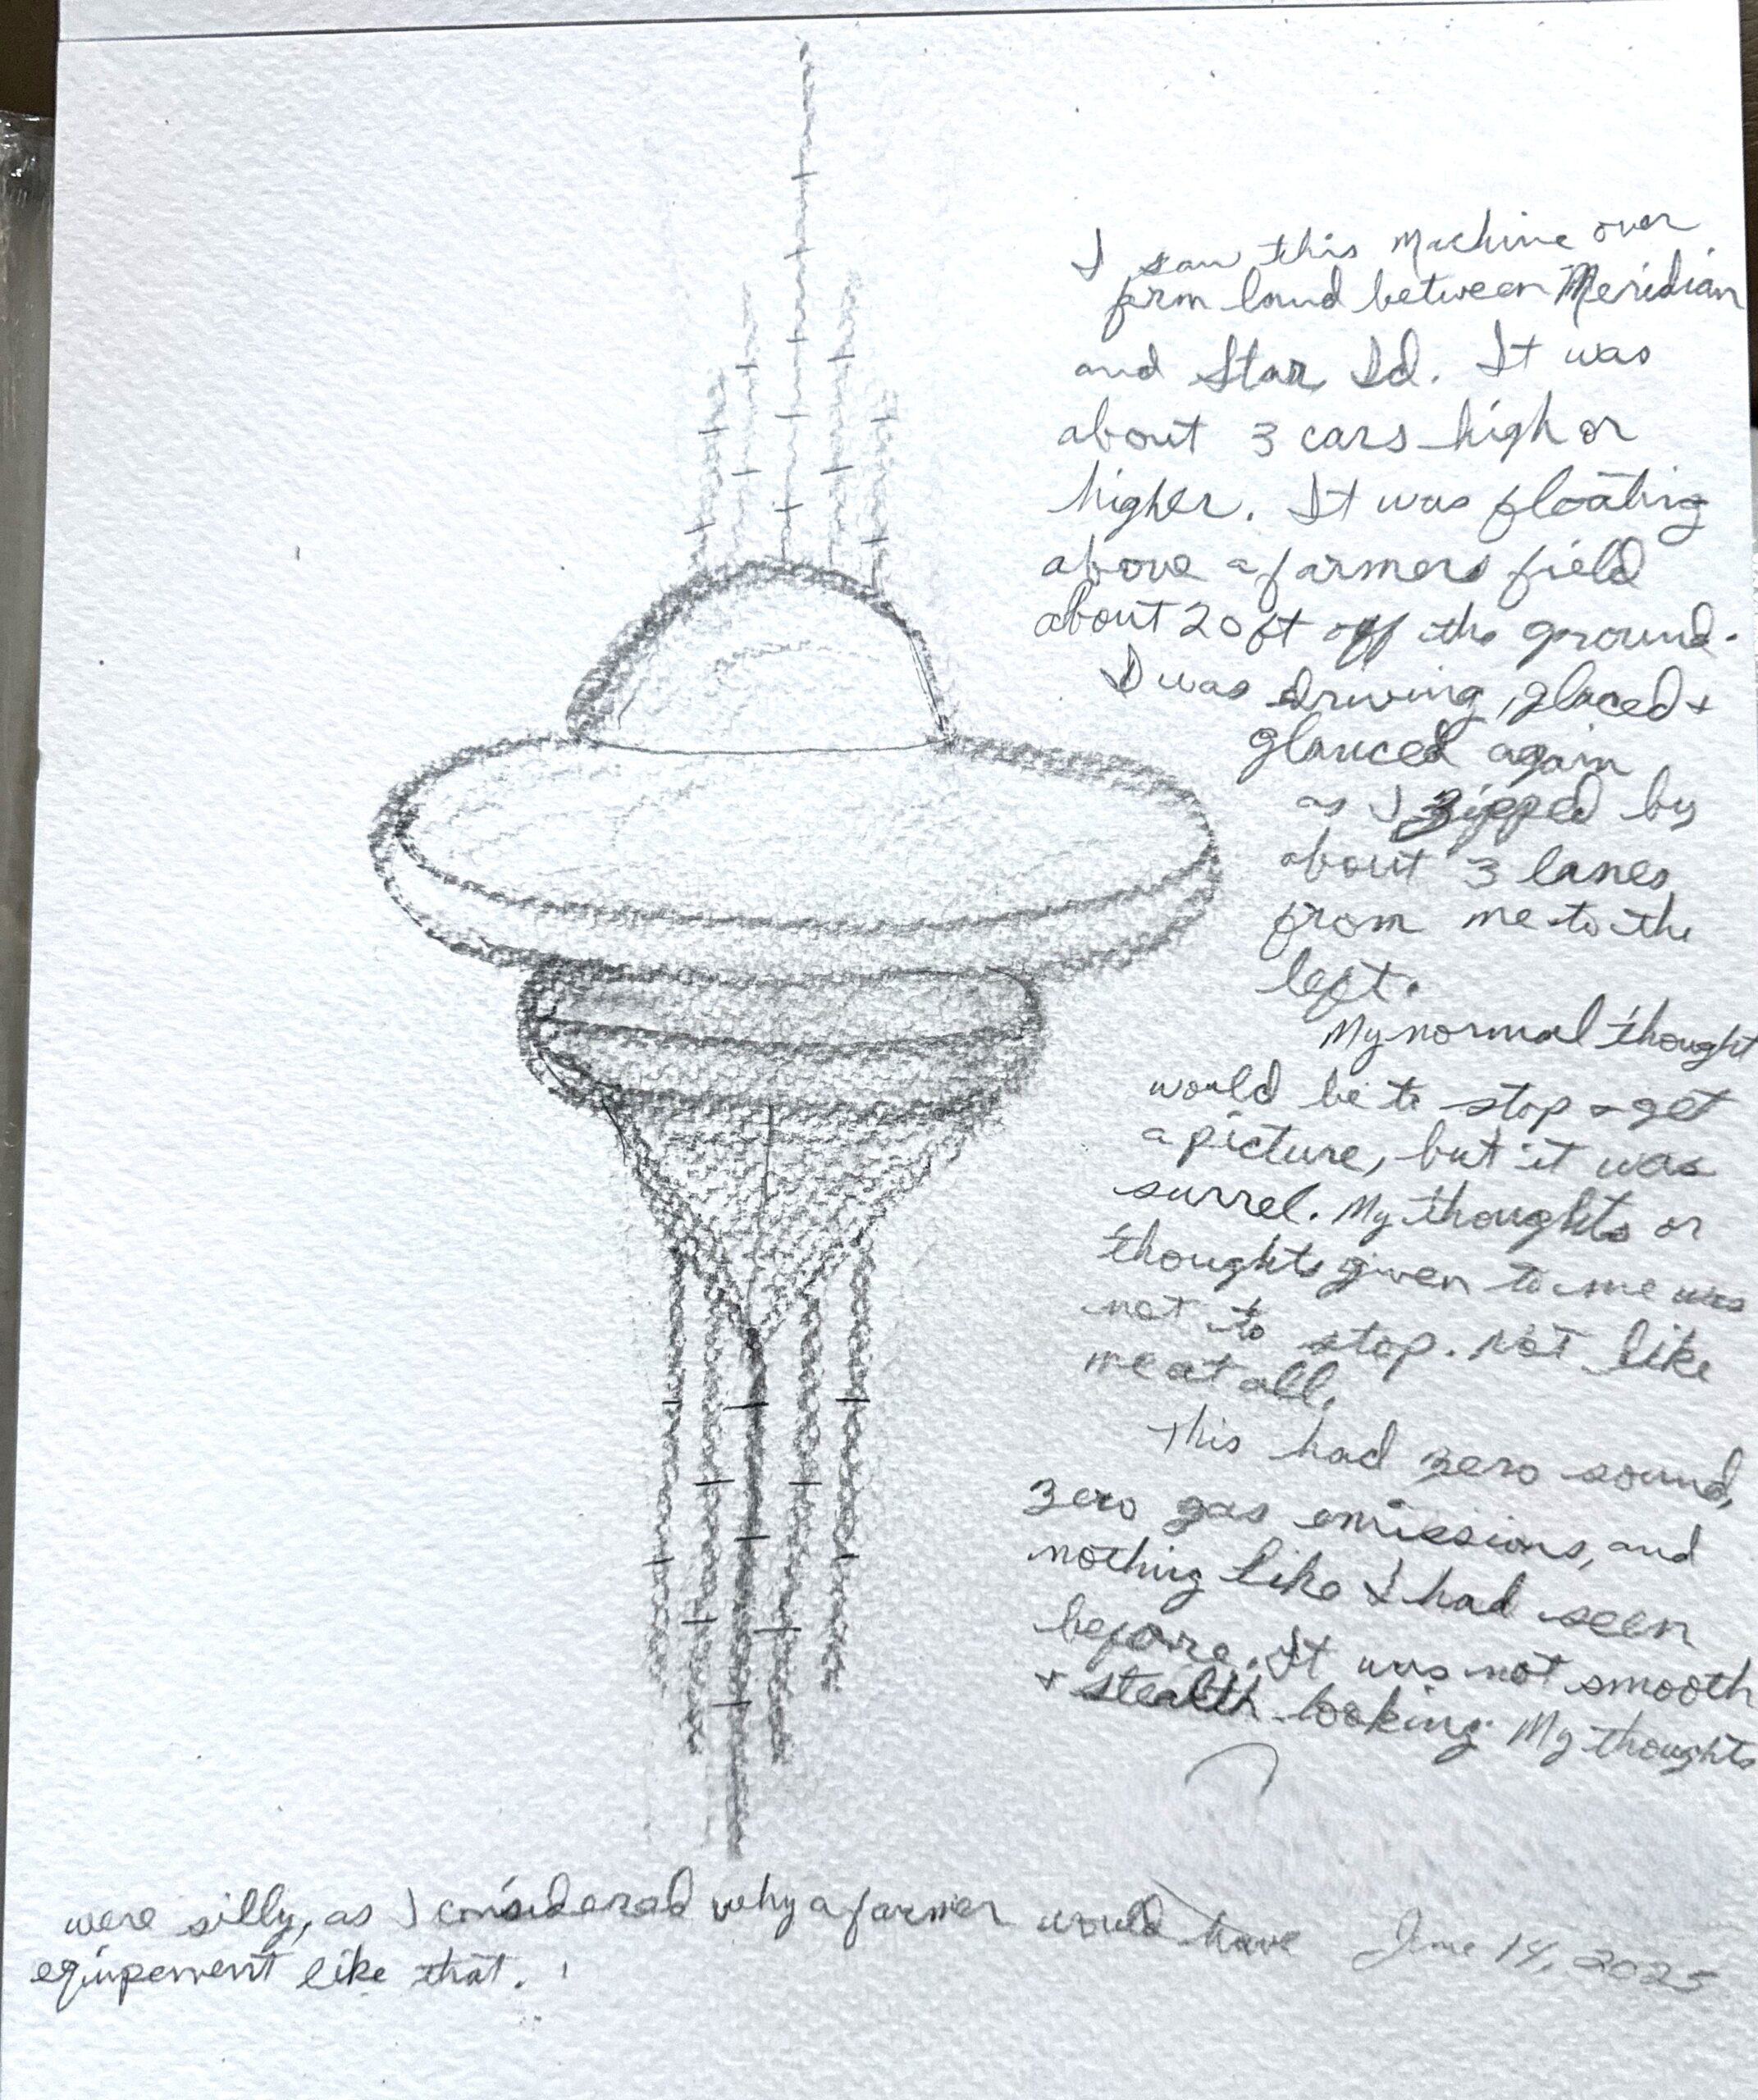 I saw this Machine over
farm land between Meridian
and Star Id. It was
about 3 cars high or
higher. It was floating
above a farmers field
about 20 ft off the ground.
I was driving, glaced +
glanced again
as I zipped by
about 3 lanes
from me to the
left.
My normal thought
would be to stop + get
a picture, but it was
surrel. My thoughts or
thoughts given to me was
not to stop. Not like
me at all.
This had zero sound,
zero gas emissions, and
nothing like I had seen
before. It was not smooth
+ stealth looking. My thoughts
were silly, as I considerad why a farmer would have
equipement like that.
June 14, 2025